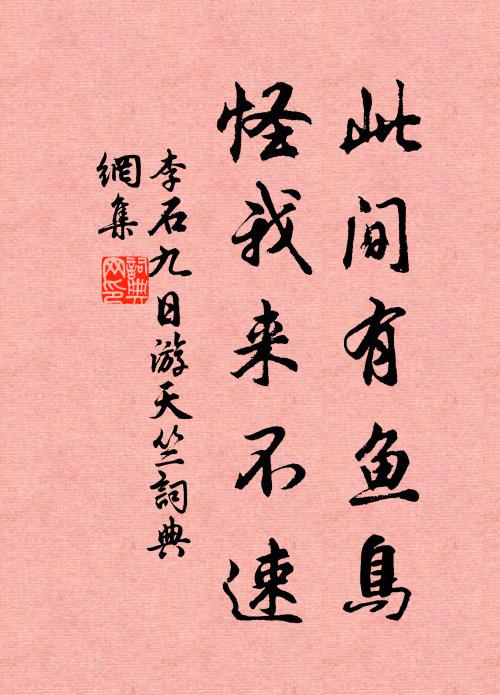 此间有鱼鳥
怪我来不速
李石九日游天竺詞典
網集
詞典
网印